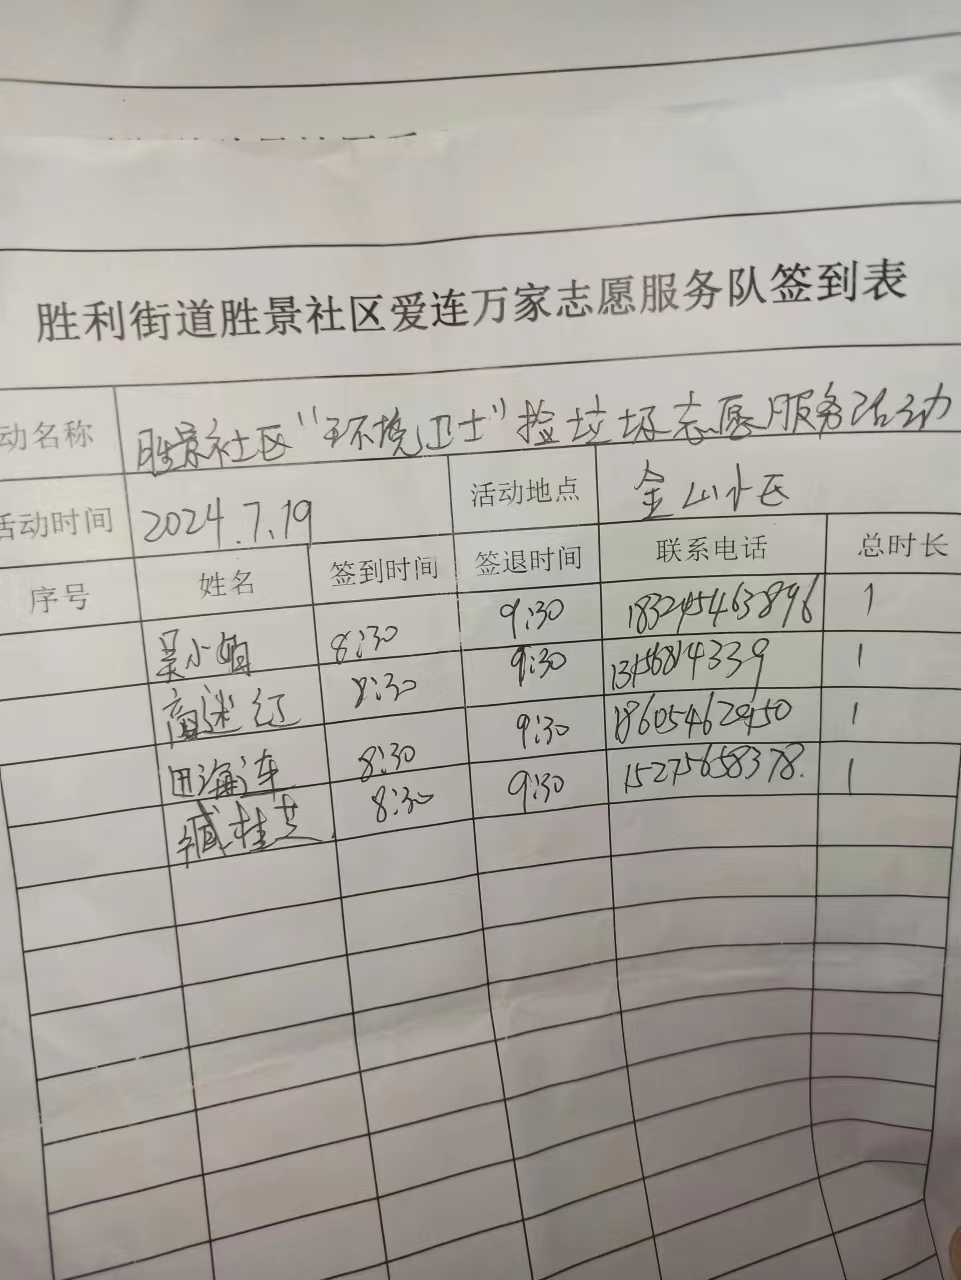 胜利街道胜景社区爱连万家志愿服务队签到表
动名称 胜景社区“环境卫士”捡垃圾志愿服务活动
活动时间 2024.7.19 活动地点 金山小区
序号 姓名 签到时间 签退时间 联系电话 总时长
吴小娟 8:30 9:30 1
高迷红 8:30 9:30 1
田海连 8:30 9:30 18605462950 1
臧桂芝 8:30 9:30 15275658378. 1